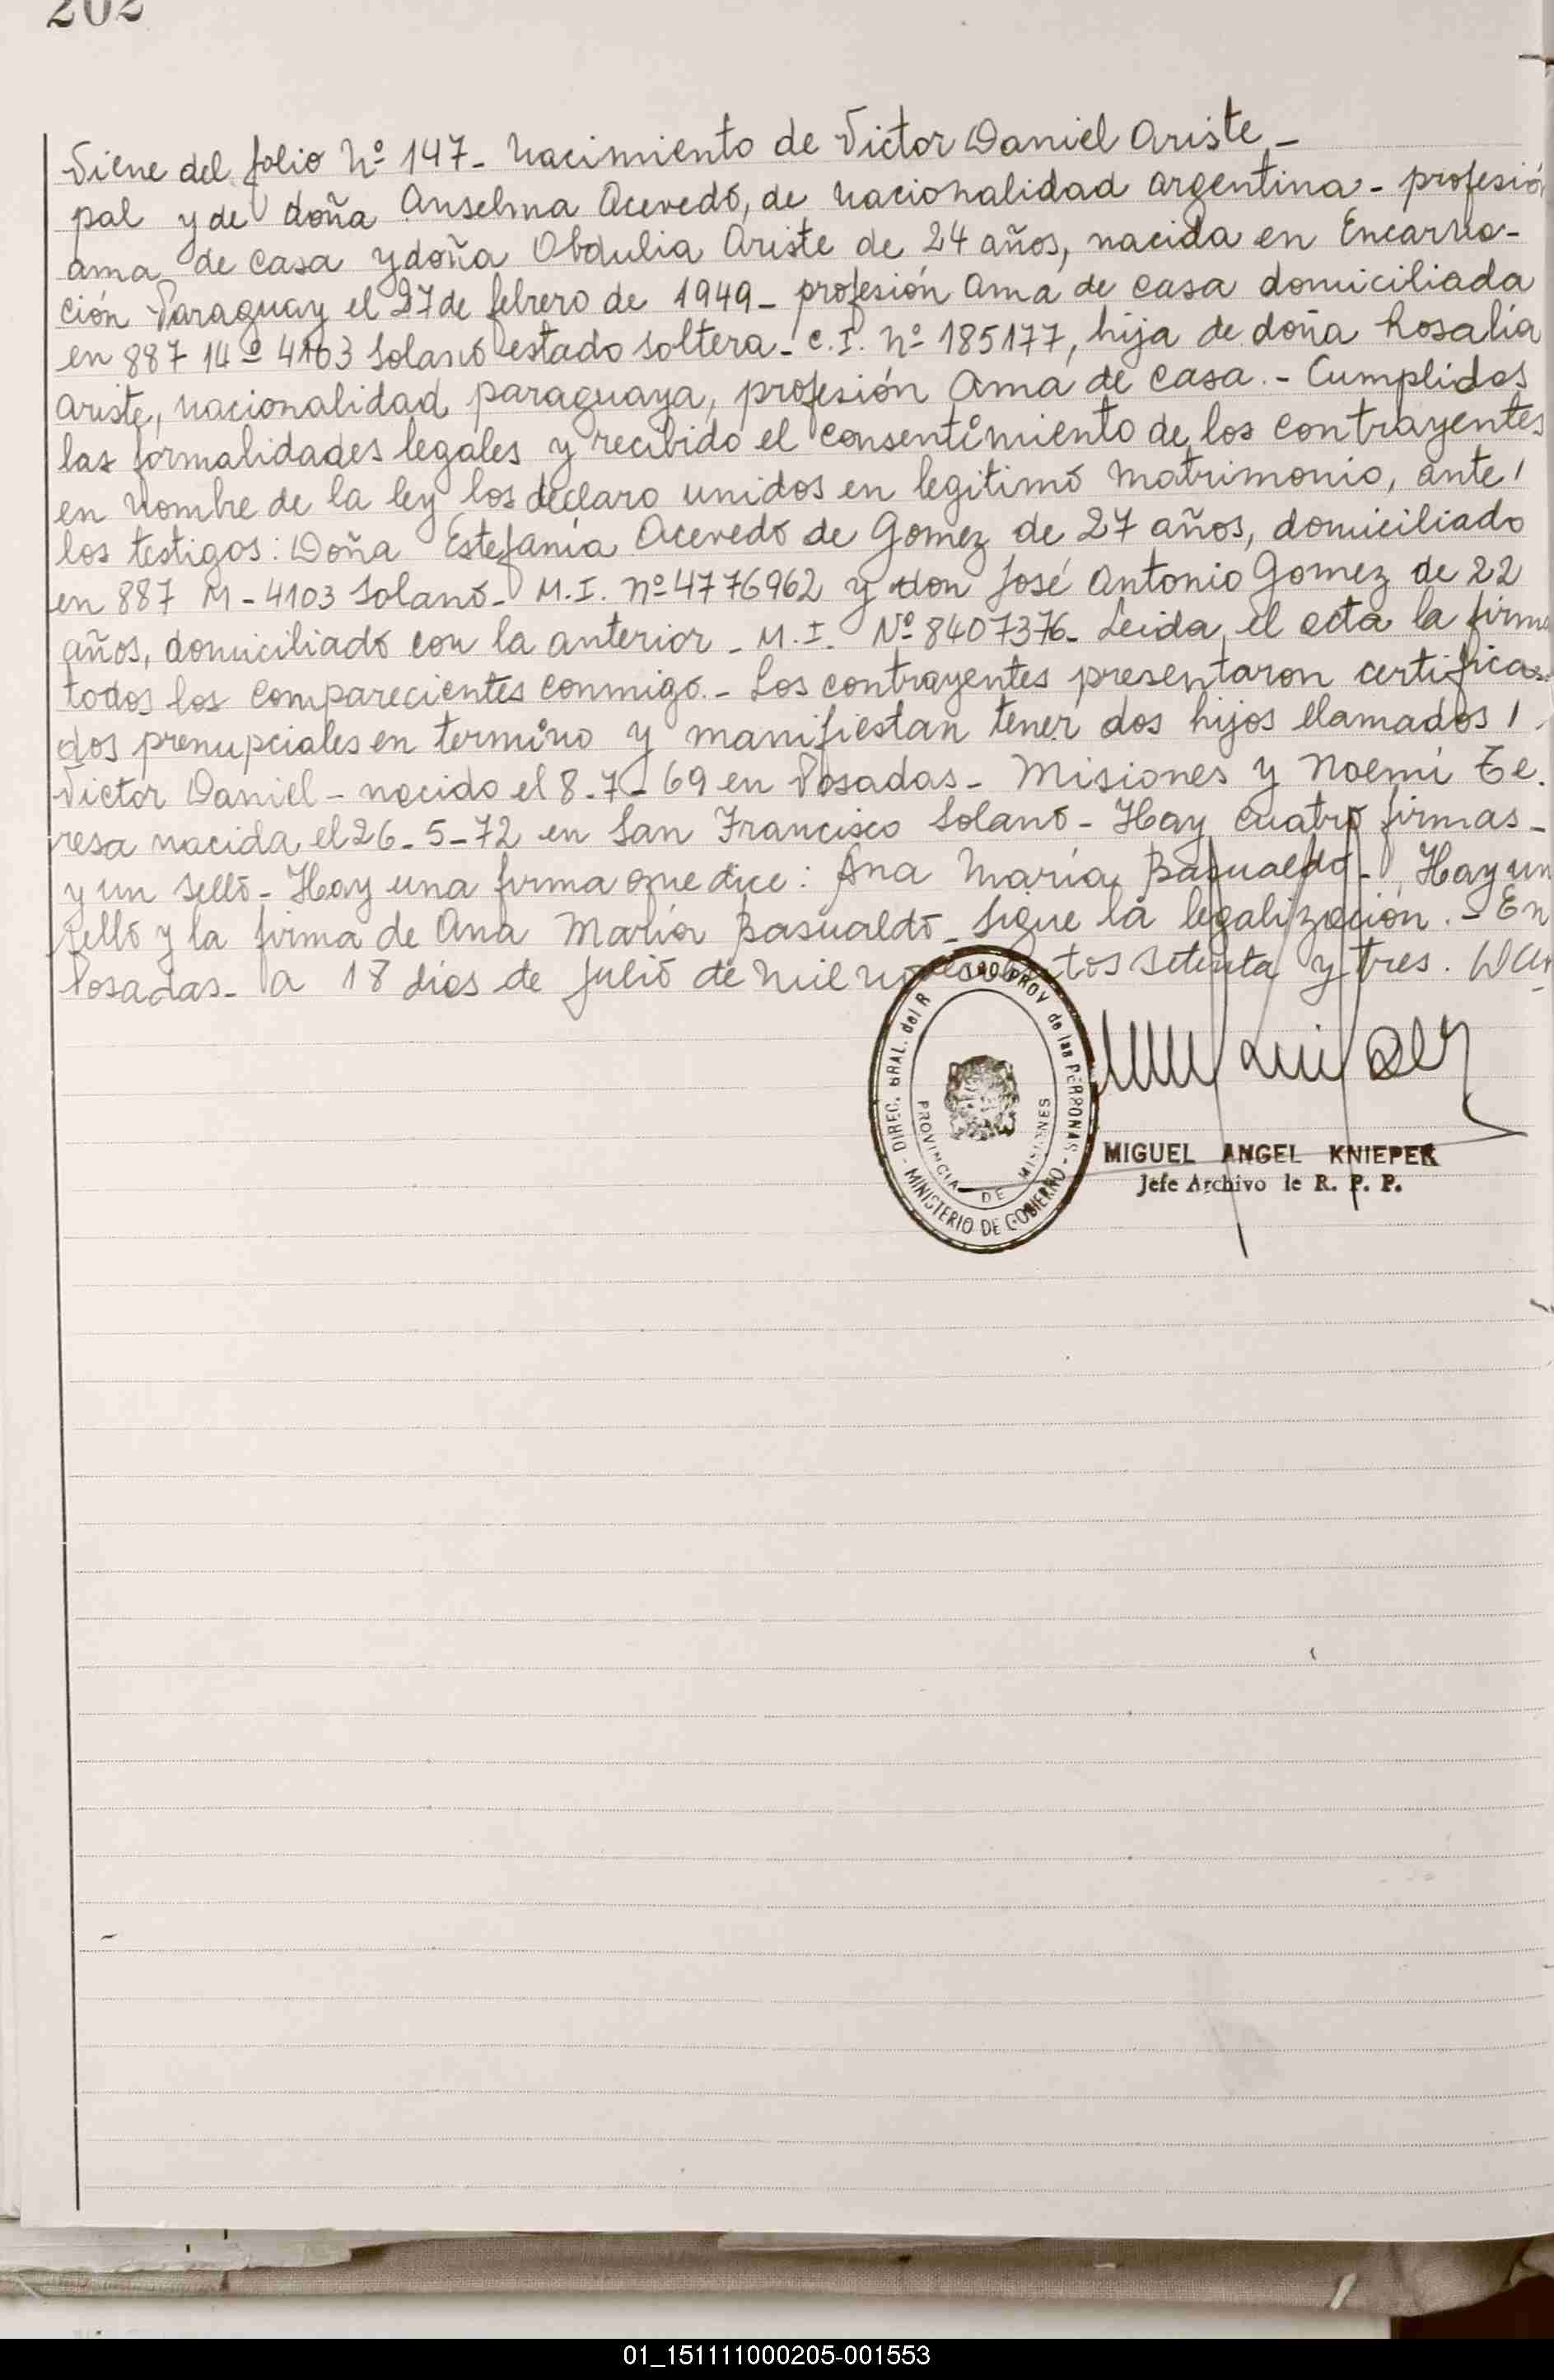 202
Viene del folio Nº 147- Nacimiento de Victor Daniel Ariste.-
pal y de doña Anselma Acevedo, de nacionalidad argentina - profesión
ama de casa y doña Obdulia Ariste de 24 años, nacida en Encarna-
ción Paraguay el 27 de febrero de 1949 - profesión Ama de casa domiciliada
en 887 14º 4103 Solano estado soltera - C.I. nº 185177, hija de doña Rosalia
Ariste, nacionalidad paraguaya, profesión Ama de casa.- Cumplidas
las formalidades legales y recibido el consentimiento de los contrayentes
en nombre de la ley los declaro unidos en legitimo matrimonio, ante
los testigos: Doña Estefanía Acevedo de Gomez de 27 años, domiciliado
en 887 M - 4103 Solano - M.I. nº 4776962 y don José Antonio Gomez de 22
años, domiciliado con la anterior - M.I. Nº 8407376 - Leida el acta la firma
todos los comparecientes conmigo.- Los contrayentes presentaron certifica-
dos prenupciales en termino y manifiestan tener dos hijos llamados
Victor Daniel - nacido el 8-7-69 en Posadas - Misiones y Noemi Te-
resa nacida el 26-5-72 en San Francisco Solano - Hay cuatro firmas -
y un sello - Hay una firma que dice: Ana María Basualdo - Hay un
sello y la firma de Ana María Basualdo - Sigue la legalización.- En
Posadas - a 18 días de julio de mil novecientos setenta y tres.
DIREC. GRAL. del R PROV de las PERSONAS
MINISTERIO DE GOBIERNO
PROVINCIA DE MISIONES
MIGUEL ANGEL KNIEPER
Jefe Archivo de R. P. P.
01_151111000205-001553